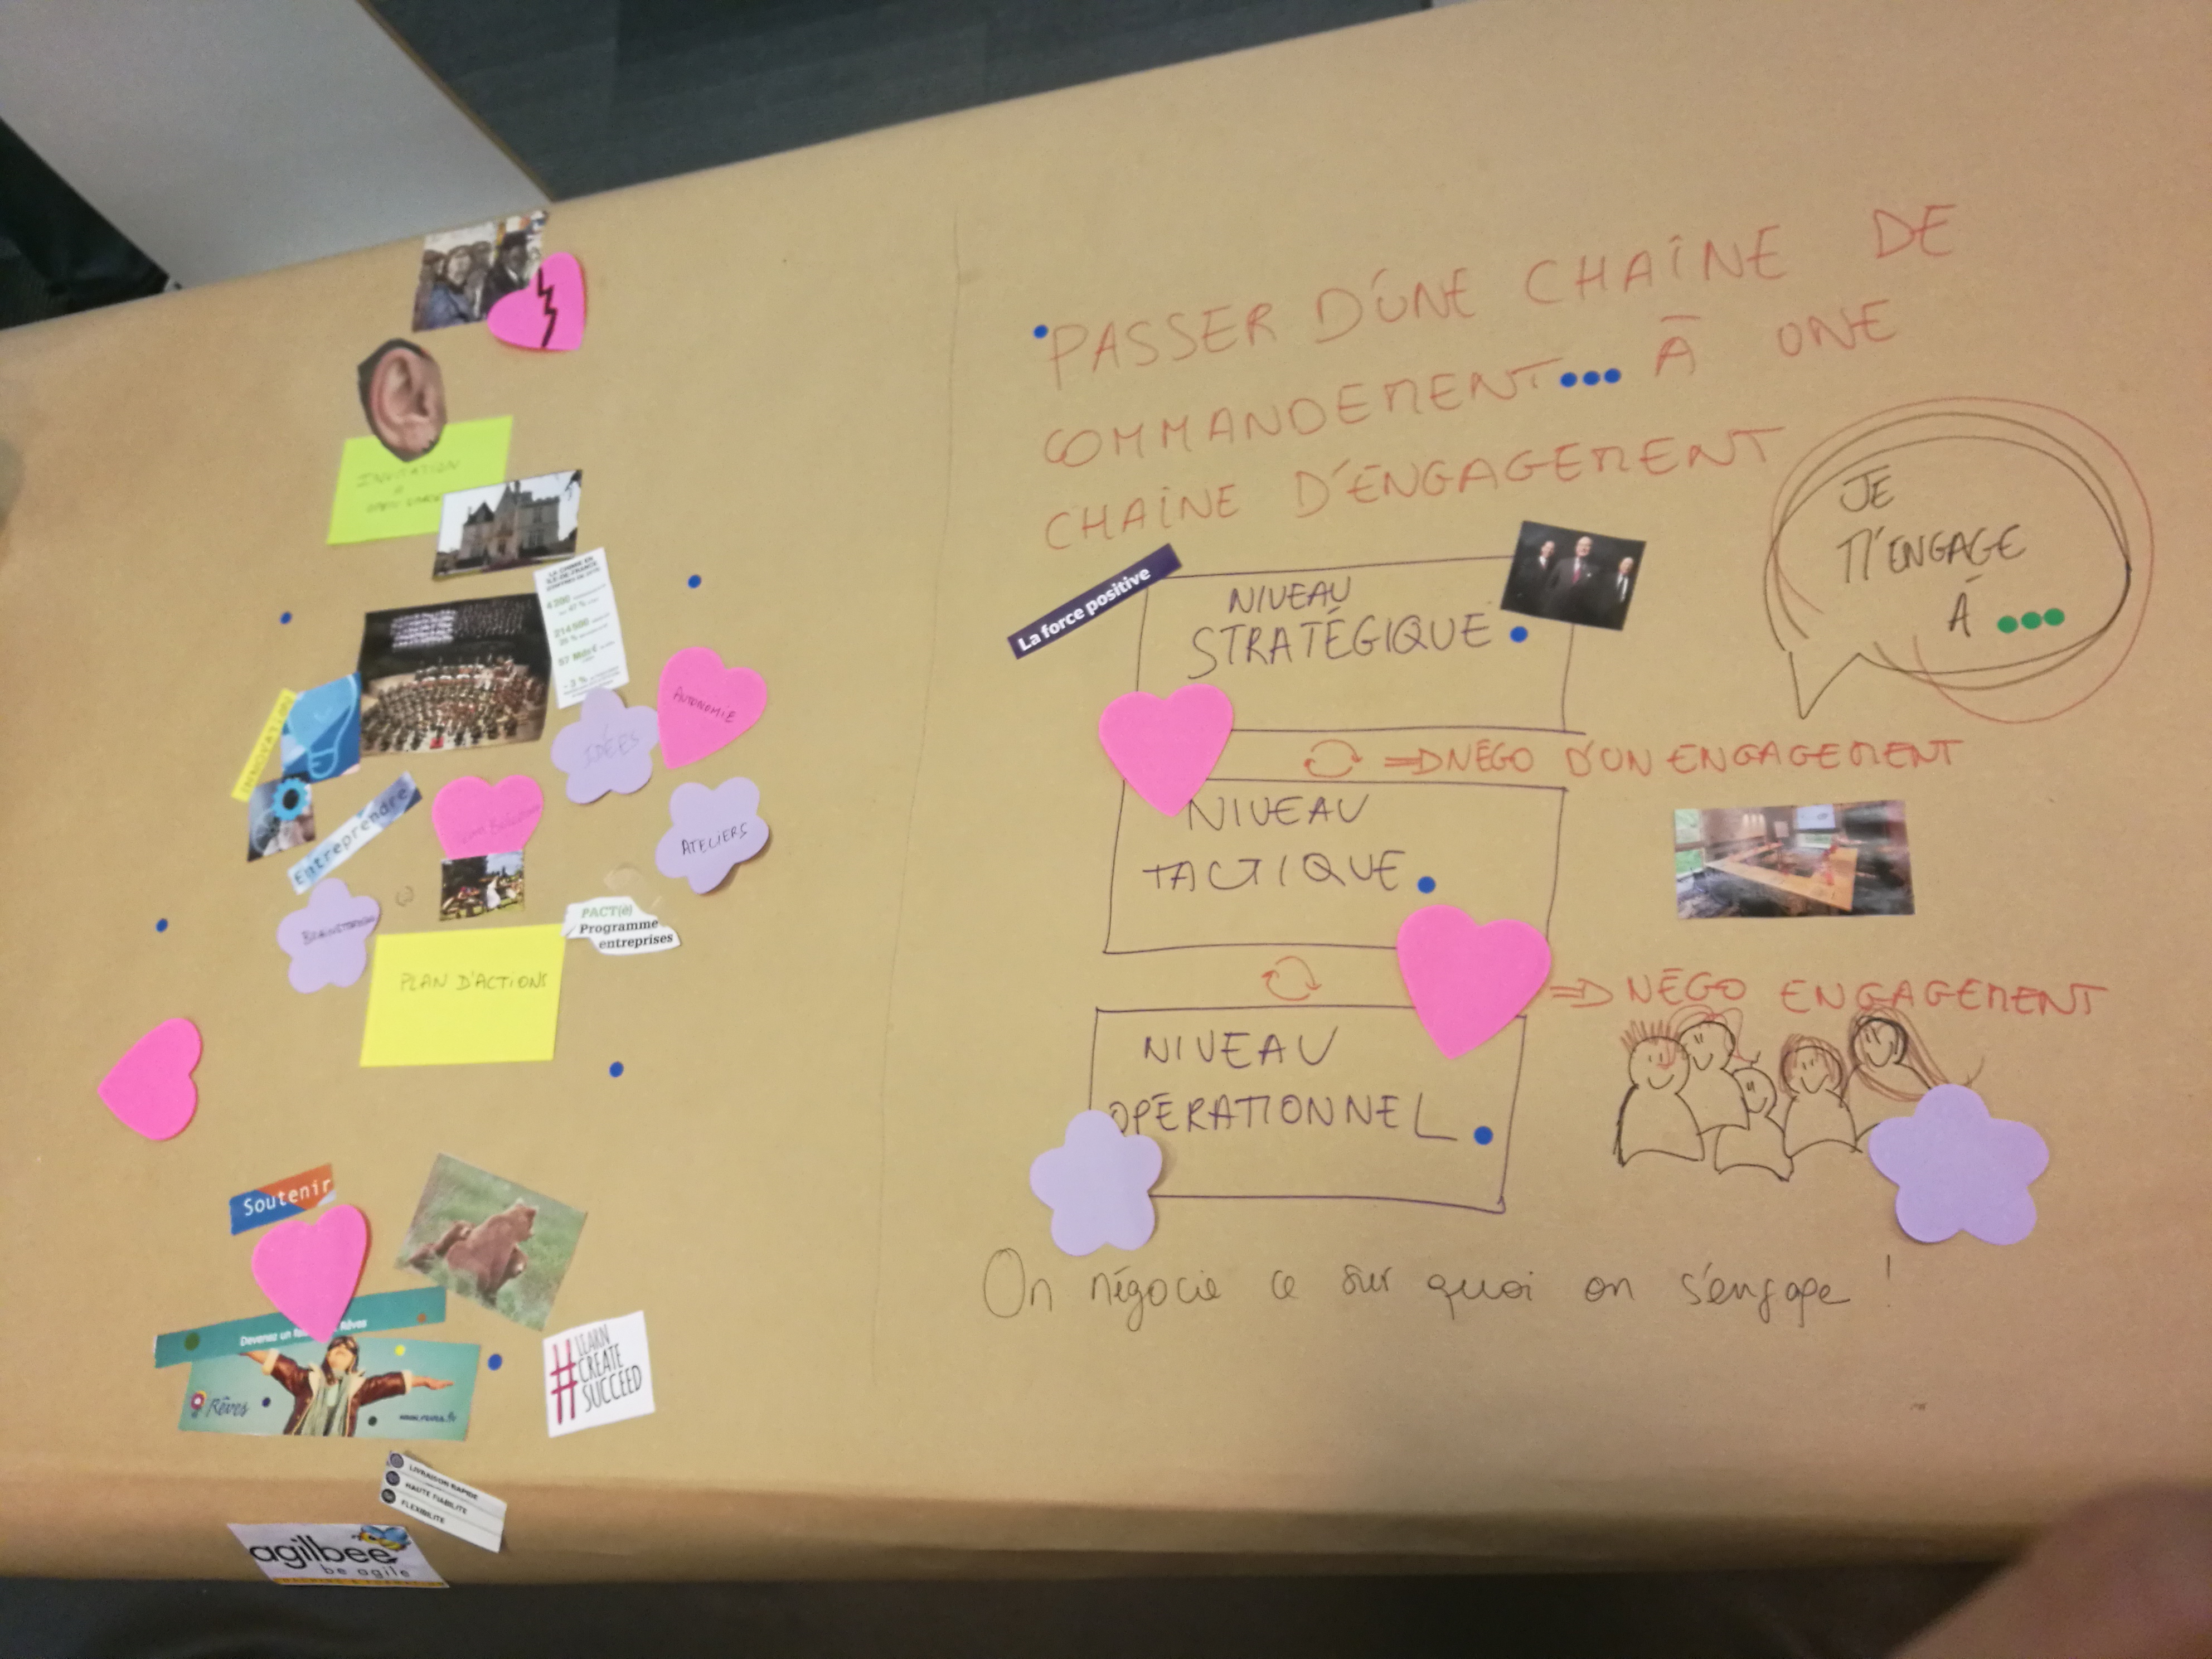 INVITATION
4 200
214 500
57 Mdr€
- 3 %
IDÉES
AUTONOMIE
Entreprendre
ATELIERS
PACT(e)
Programme
entreprises
PLAN D'ACTIONS
Soutenir
Devenez un Rêves
Rêves
www.reves.fr
#LEARN
CREATE
SUCCEED
LIVRAISON RAPIDE
HAUTE FIABILITE
FLEXIBILITE
agilbee
be agile
PASSER D'UNE CHAÎNE DE
COMMANDEMENT... À UNE
CHAÎNE D'ENGAGEMENT
JE
M'ENGAGE
À ...
La force positive
NIVEAU
STRATÉGIQUE
=> NÉGO D'UN ENGAGEMENT
NIVEAU
TACTIQUE
=> NÉGO ENGAGEMENT
NIVEAU
OPÉRATIONNEL
On négocie ce sur quoi on s'engage !